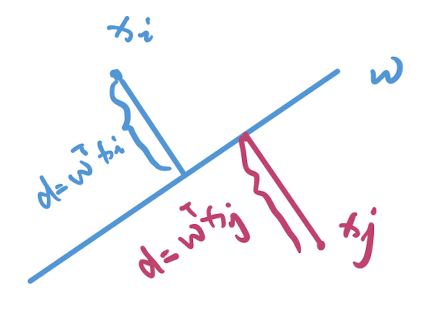 x_i
w
d = w^T x_i
d = w^T x_j
x_j